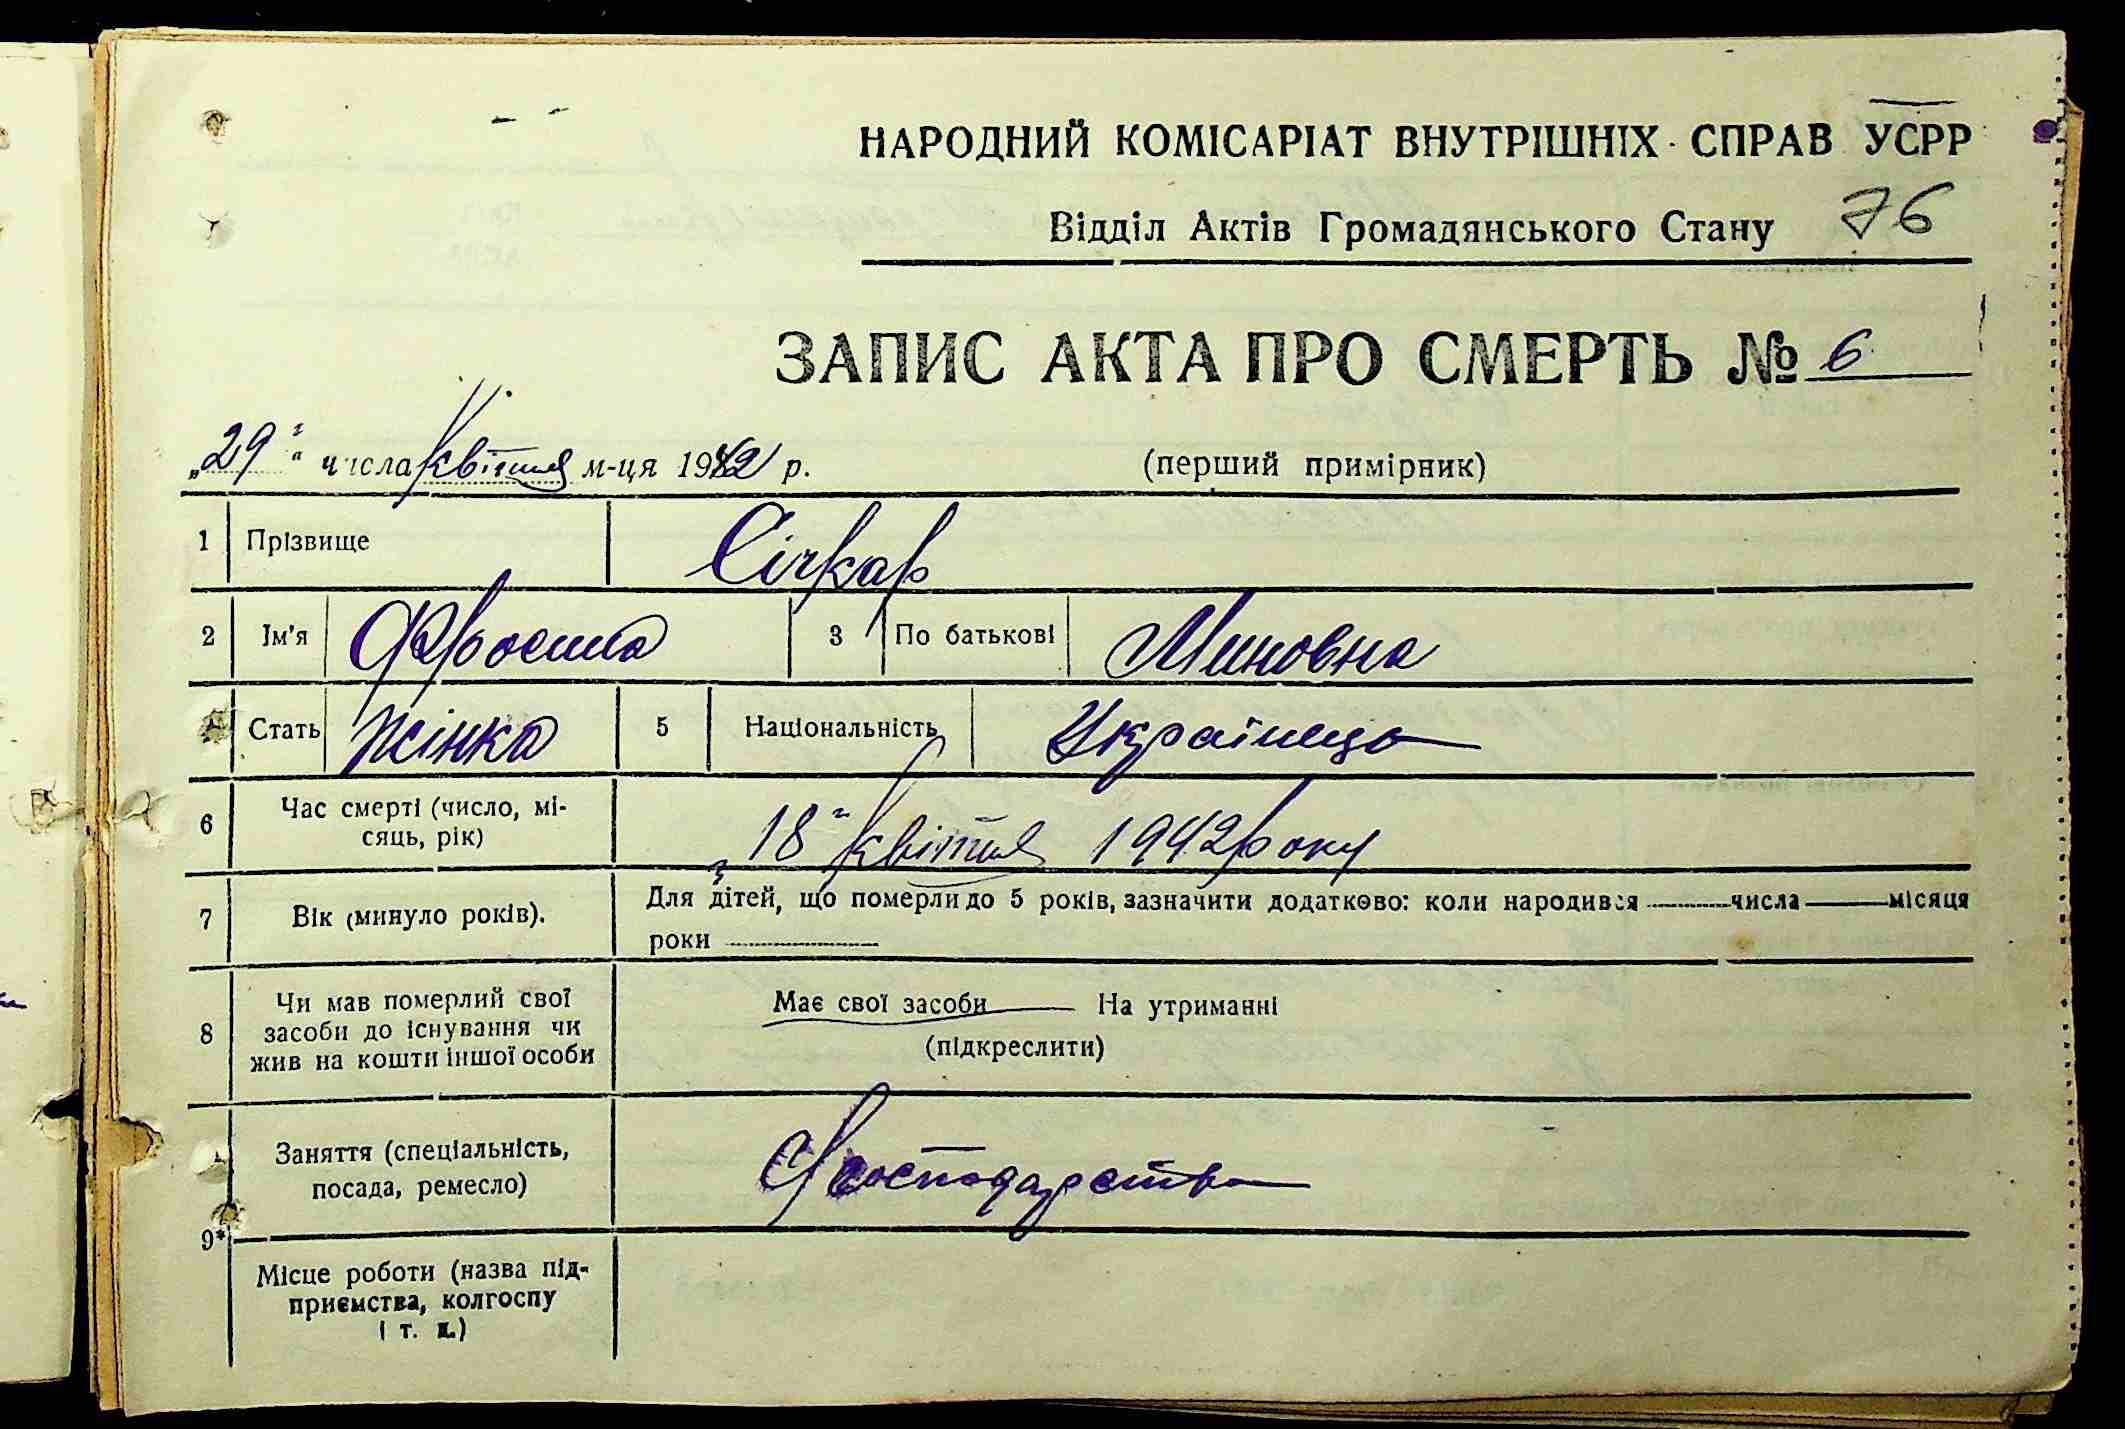 НАРОДНИЙ КОМІСАРІАТ ВНУТРІШНІХ СПРАВ УСРР
Відділ Актів Громадянського Стану 76
ЗАПИС АКТА ПРО СМЕРТЬ № 6
„29“ числа квітня м-ця 1942 р. (перший примірник)
1 Прізвище Січкар
2 Ім'я 3 По батькові Миновна
Стать Жінка 5 Національність Українець
6 Час смерті (число, мі-
сяць, рік) „18“ квітня 1942 року
7 Вік (минуло років). Для дітей, що померли до 5 років, зазначити додатково: коли народився числа місяця
роки
8 Чи мав померлий свої
засоби до існування чи
жив на кошти іншої особи
Має свої засоби На утриманні
(підкреслити)
Заняття (спеціальність,
посада, ремесло) господарство
9*
Місце роботи (назва під-
приємства, колгоспу
і т. д.)